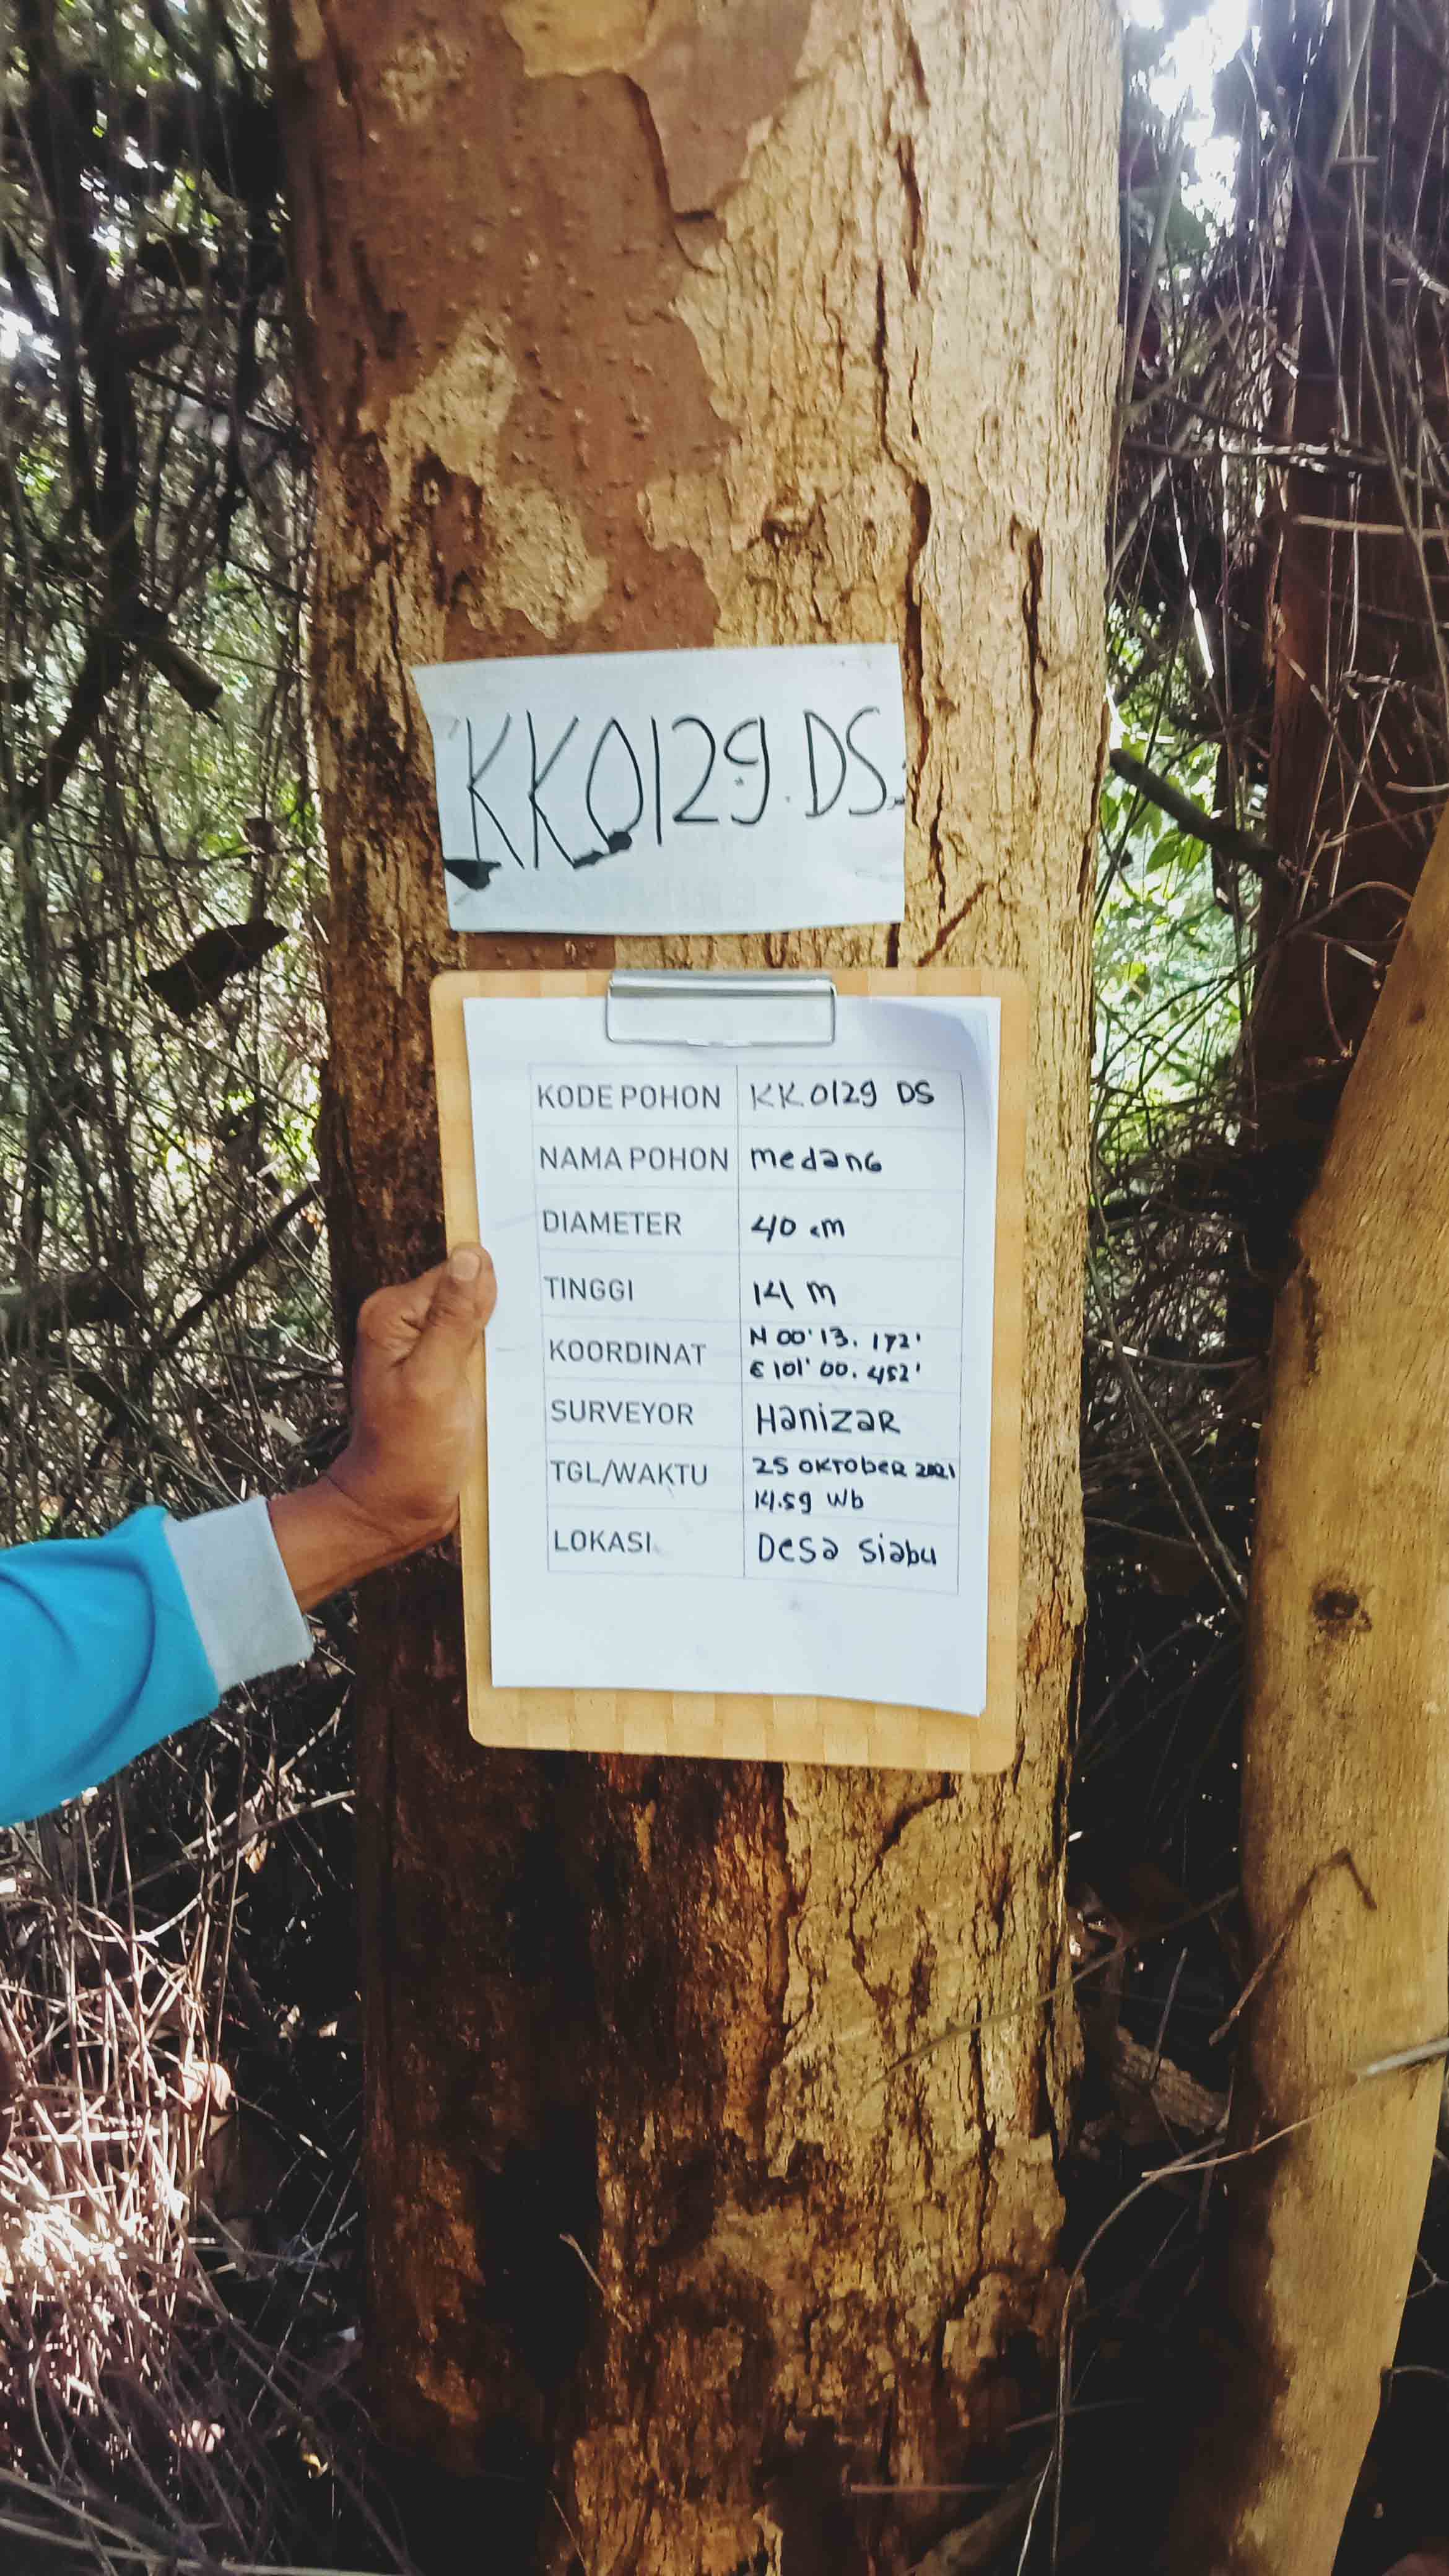 KK0129.DS
KODE POHON KK0129 DS
NAMA POHON medanG
DIAMETER 40 cm
TINGGI 14 m
KOORDINAT N 00'13.172'
E 101'00.452'
SURVEYOR HanizaR
TGL/WAKTU 25 OKTObeR 2021
14.59 Wb
LOKASI Desa Siabu